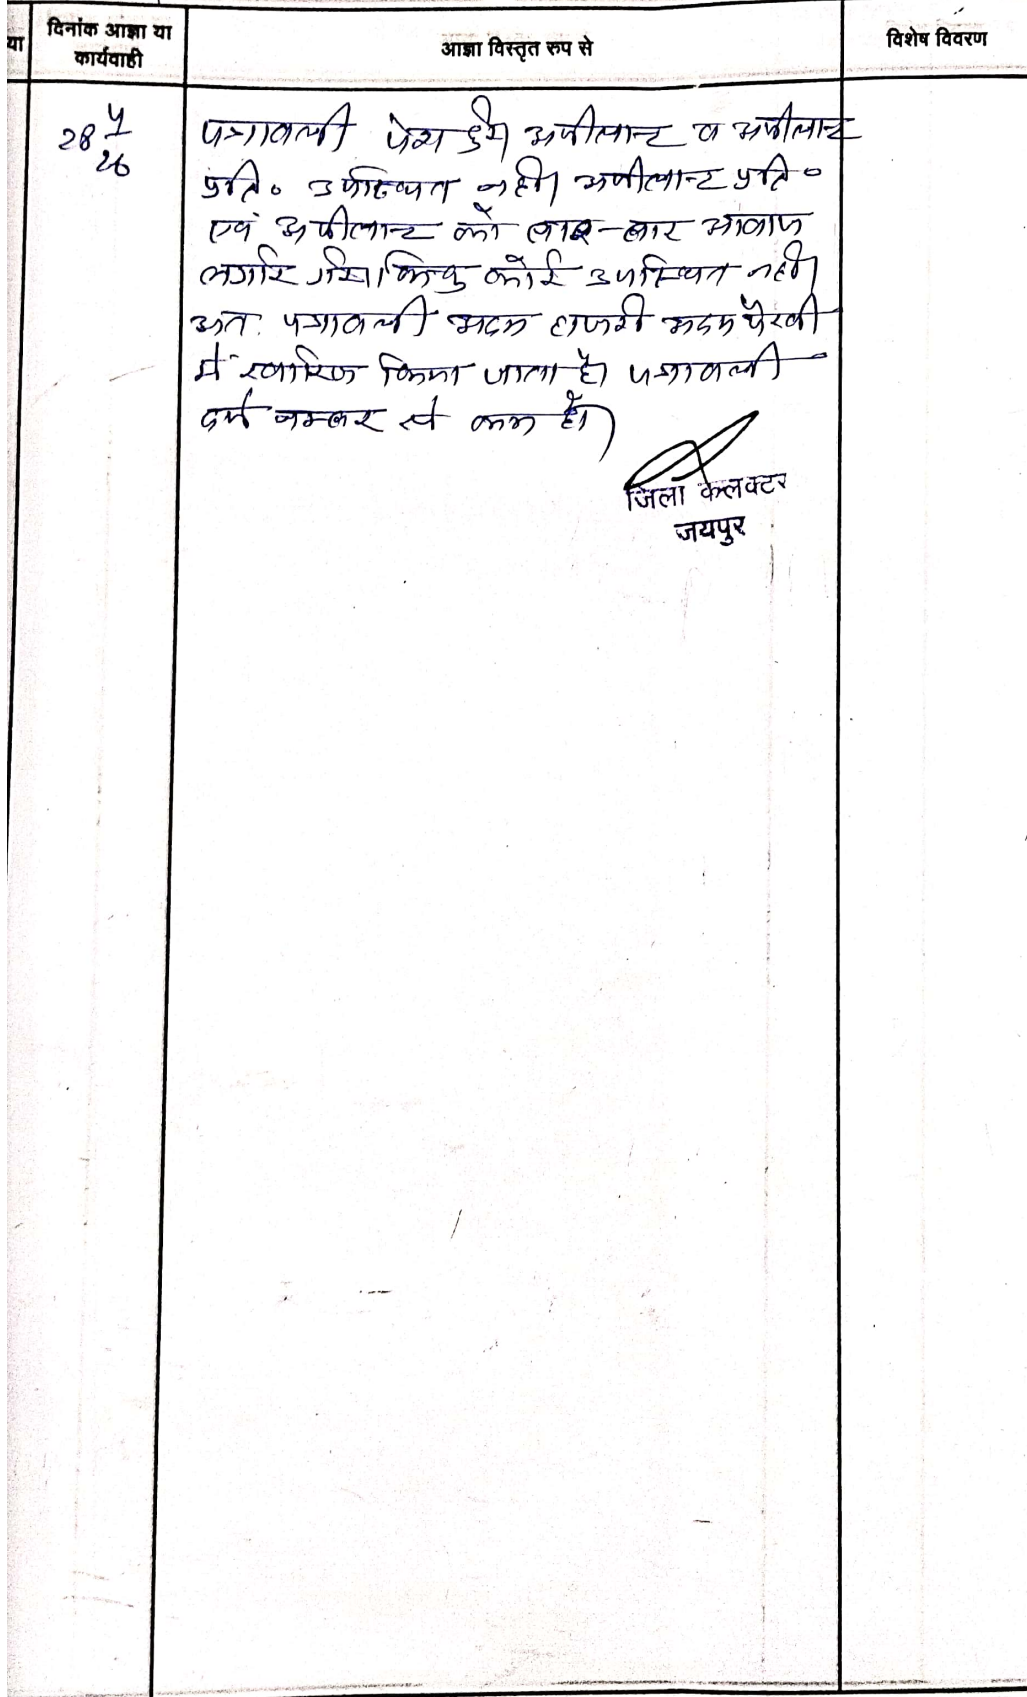 या
दिनांक आज्ञा या
कार्यवाही
आज्ञा विस्तृत रुप से
विशेष विवरण
28 4/26
पत्रावली पेश हुई। अपीलान्ट व अपीलान्ट
प्रति० उपस्थित नही। अपीलान्ट प्रति०
एवं अपीलान्ट को बार-बार आवाज
लगाई गयी। किन्तु कोई उपस्थित नही।
अत: पत्रावली अदम हाजरी अदम पैरवी
में खारिज किया जाता है। पत्रावली
दर्ज नम्बर से कम हो।
जिला कलक्टर
जयपुर